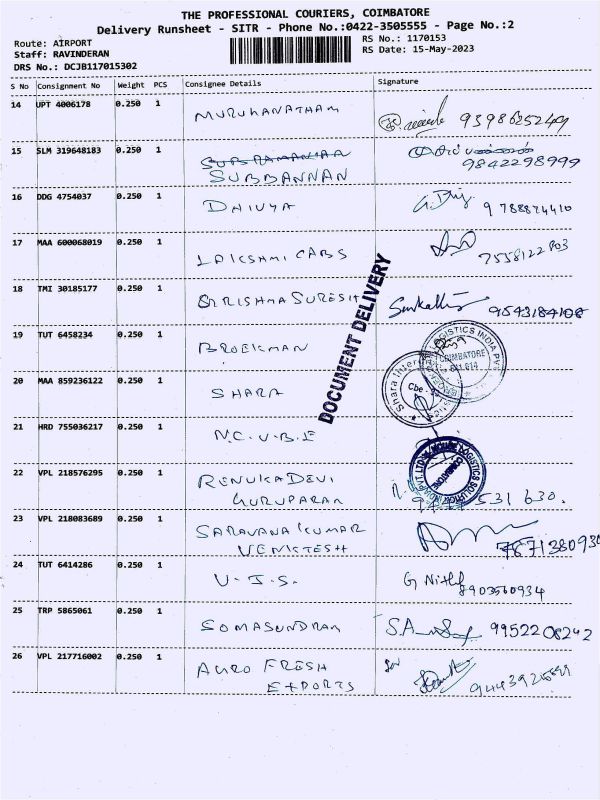 THE PROFESSIONAL COURIERS, COIMBATORE
Delivery Runsheet - SITR - Phone No.:0422-3505555 - Page No.:2
Route: AIRPORT
Staff: RAVINDERAN
DRS No.: DCJB117015302
RS No.: 1170153
RS Date: 15-May-2023
S No Consignment No Weight PCS Consignee Details Signature
14 UPT 4006178 0.250 1 MURUKANATHAM
15 SLM 319648183 0.250 1 SUBRAMANIAN
9842298999
SUBBANNAN
16 DDG 4754037 0.250 1 DHIVYA
17 MAA 600068019 0.250 1 LAKSHMI CABS 7558122803
18 TMI 30185177 0.250 1 GRISHMA SURESH 9543184108
DOCUMENT DELIVERY
19 TUT 6458234 0.250 1 BROEKMAN
COIMBATORE
20 MAA 859236122 0.250 1 SHARA
Shara
Cbe
21 HRD 755036217 0.250 1 N.C.U.B.E
22 VPL 218576295 0.250 1 RENUKADEVI
GURUPARAN
531 630.
23 VPL 218083689 0.250 1 SARAVANA KUMAR
VENKTESH
24 TUT 6414286 0.250 1 V.I.S. 8903560934
25 TRP 5865061 0.250 1 SOMASUNDRAM 9952208242
26 VPL 217716002 0.250 1 AGRO FRESH
EXPORTS